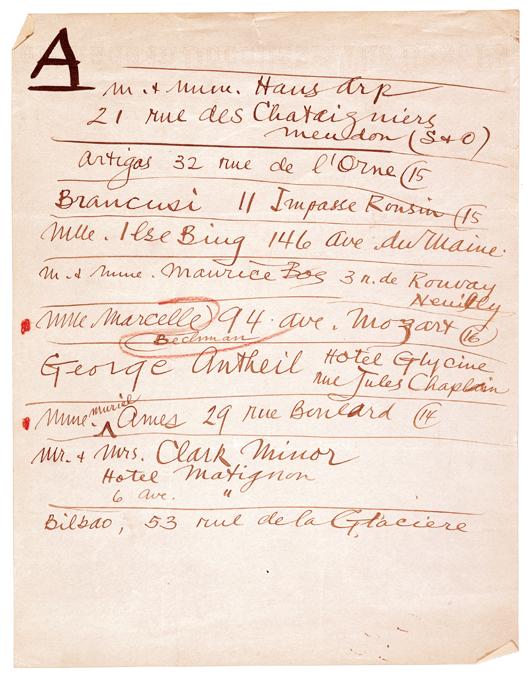 A
M. & Mme. Hans Arp
21 rue des Chataigniers
Meudon (S&O)
Artigas 32 rue de l'Orne (15
Brancusi 11 Impasse Ronsin (15
Mlle. Ilse Bing 146 Ave. du Maine.
M. & Mme. Maurice 3 r. de Rouvay
Neuilly
Mlle Marcelle 94 ave. Mozart (16
Bechman
George Antheil Hotel Glycine
rue Jules Chaplain
Mme. Muriel Ames 29 rue Boulard (14
Mr. & Mrs. Clark Minor
Hotel Matignon
6 Ave. "
Bilbao, 53 rue de la Glaciere